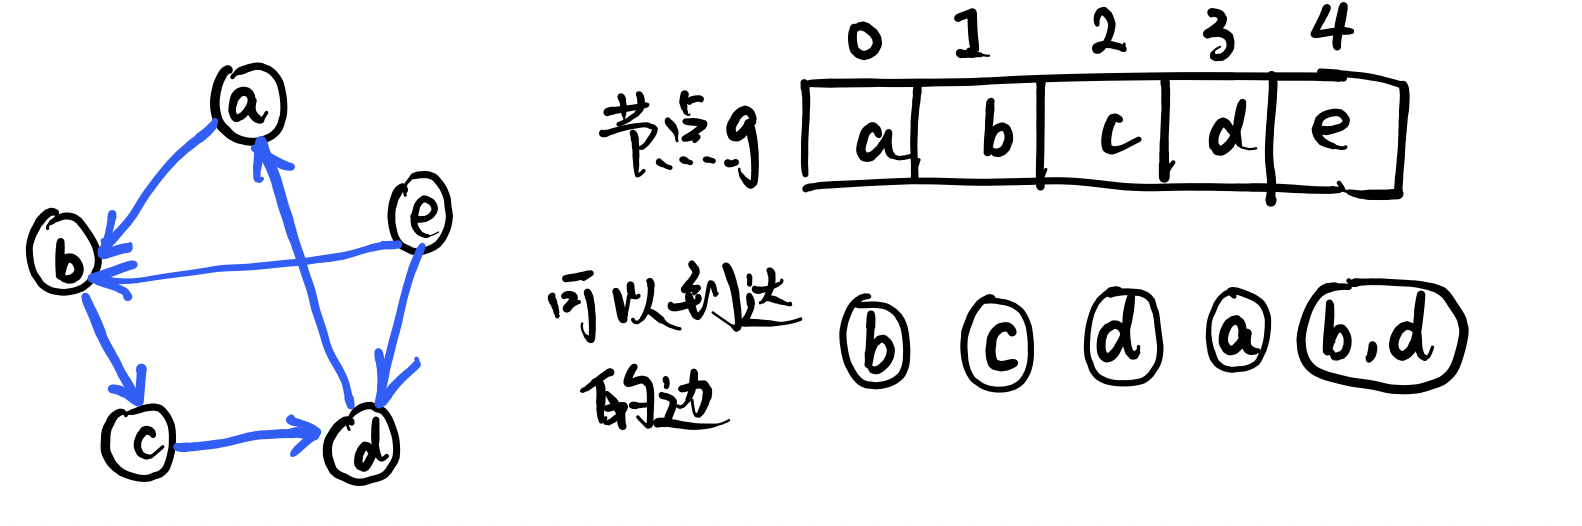 a
e
b
c
d
0 1 2 3 4
节点g a b c d e
可以到达
的边
b c d a b,d